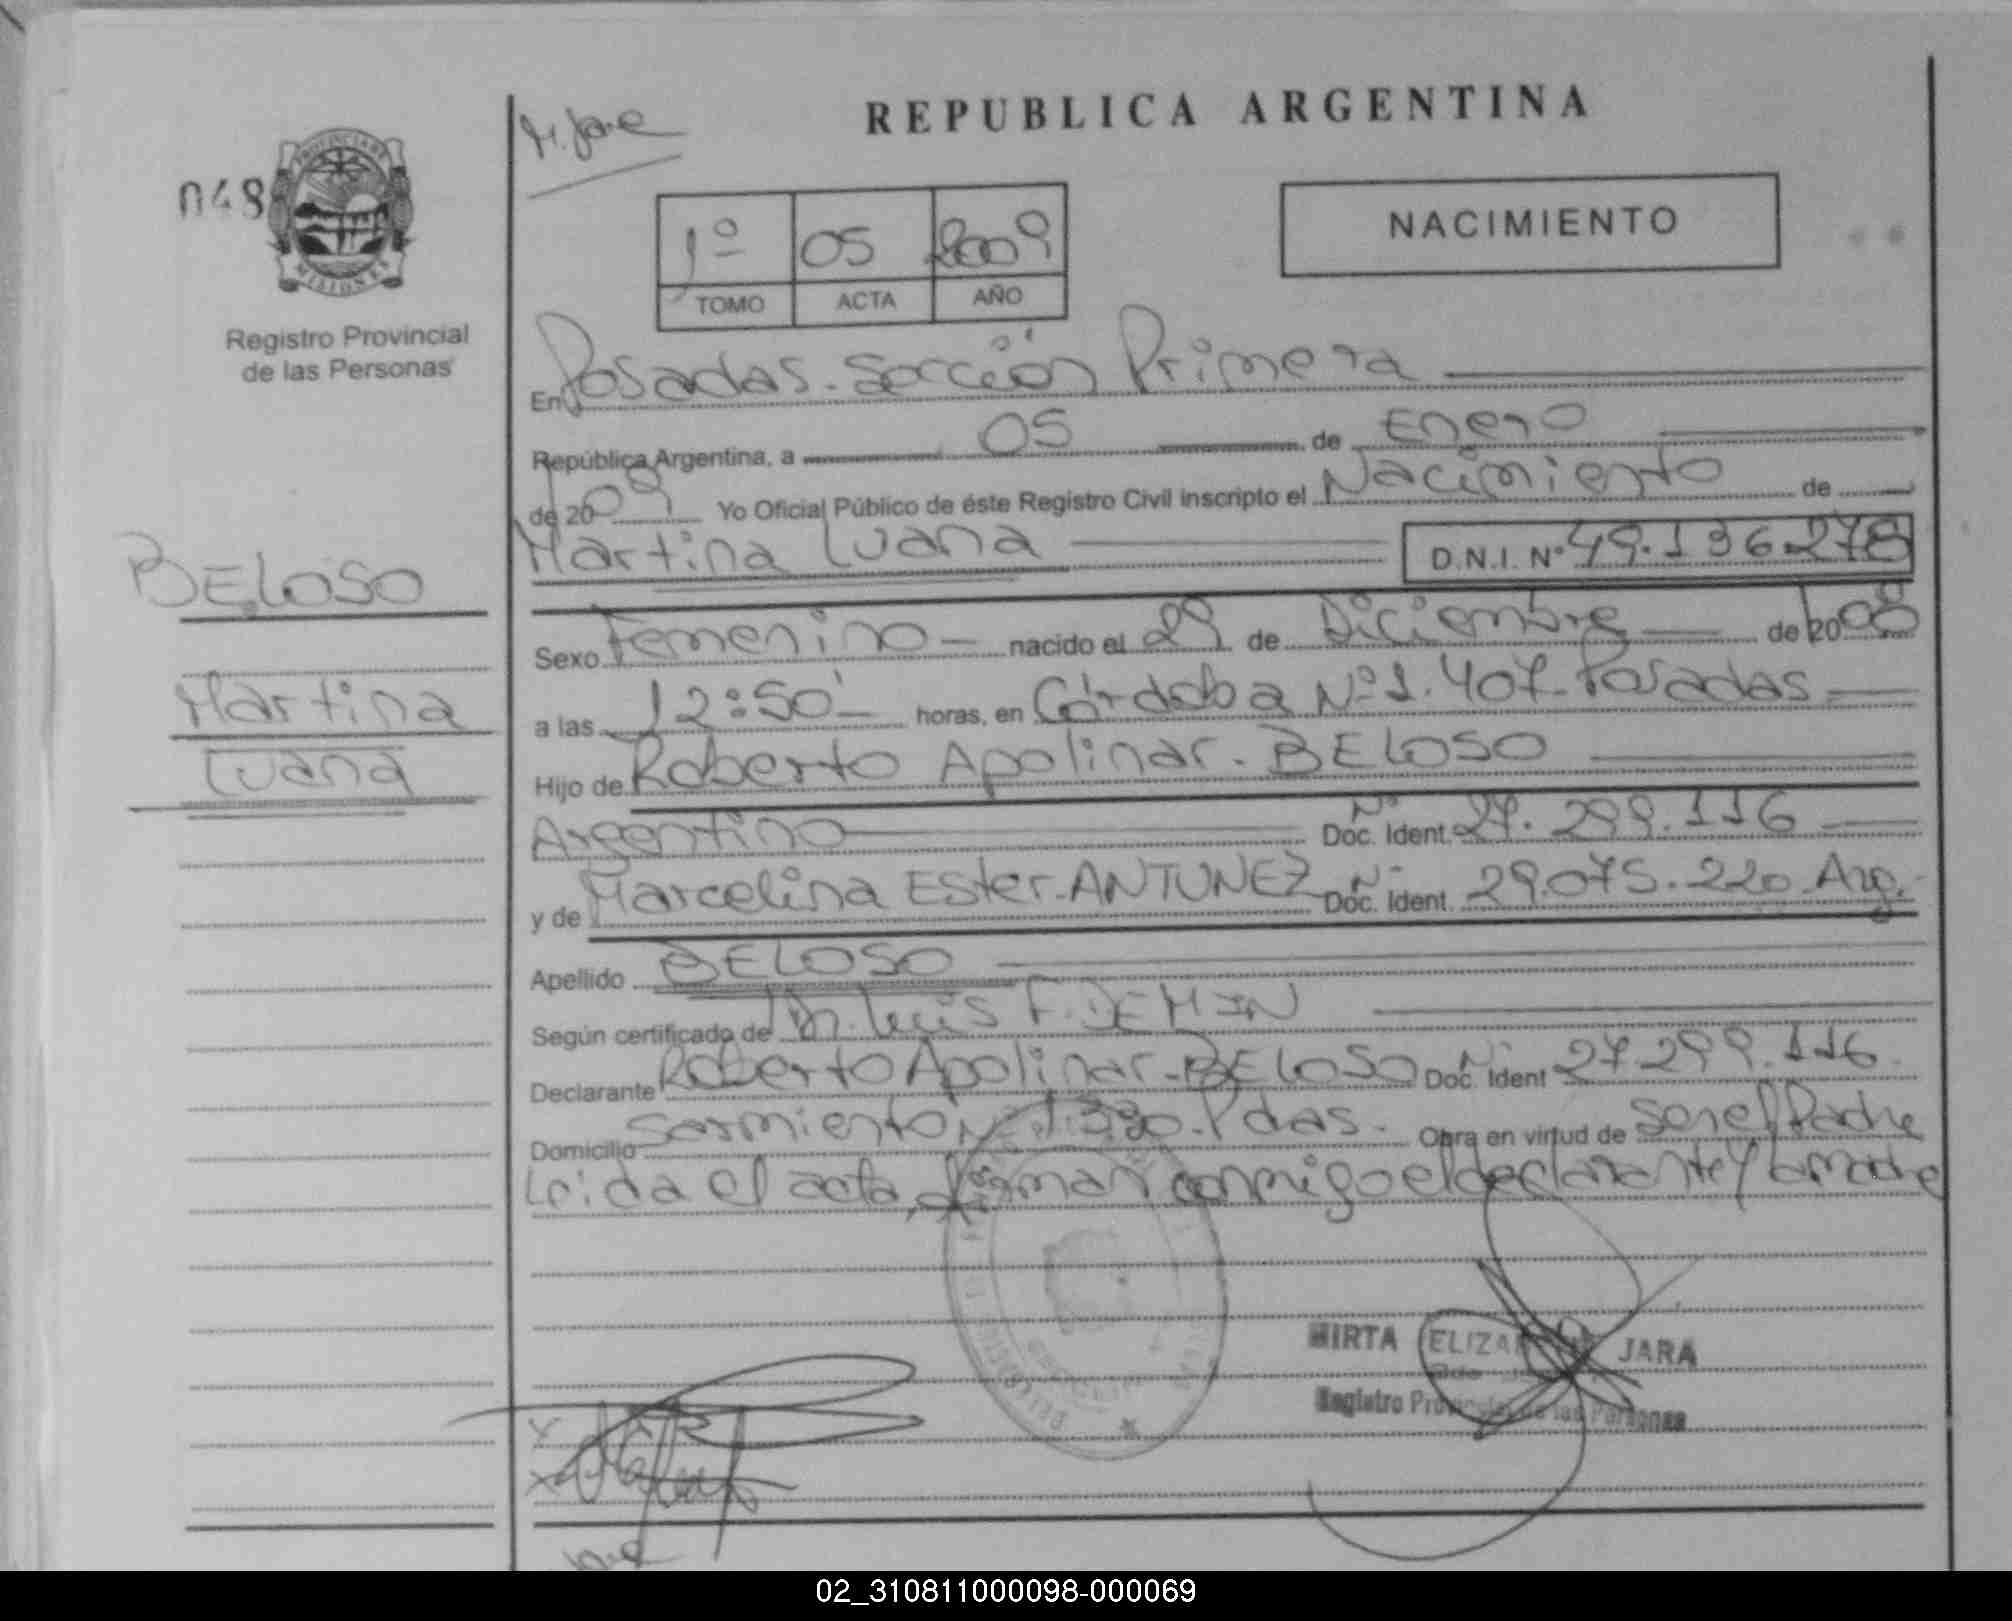 M. Jara
REPUBLICA ARGENTINA
048
PROVINCIA DE
MISIONES
1º 05 2009
TOMO ACTA AÑO
NACIMIENTO
Registro Provincial
de las Personas
En Posadas. Sección Primera
República Argentina, a 05 de Enero
de 2009 Yo Oficial Público de éste Registro Civil inscripto el Nacimiento de
Martina Luana D.N.I. Nº 49.136.278
BELOSO
Martina
Luana
Sexo Femenino nacido el 29 de Diciembre de 2008
a las 12:50' horas, en Córdoba Nº 1.407-Posadas
Hijo de Roberto Apolinar. BELOSO
Argentino Doc. Ident. Nº 27.299.116
y de Marcelina Ester-ANTUNEZ Doc. Ident. Nº 29.075.220 Arg.
Apellido BELOSO
Según certificado de Dr. Luis F. DEMIN
Declarante Roberto Apolinar-BELOSO Doc. Ident Nº 27.299.116
Domicilio Sarmiento Nº 1330. Pdas. Obra en virtud de ser el Padre
Leida el acta, firman conmigo el declarante y la madre
MIRTA ELIZABETH JARA
Registro Provincial de las Personas
02_310811000098-000069